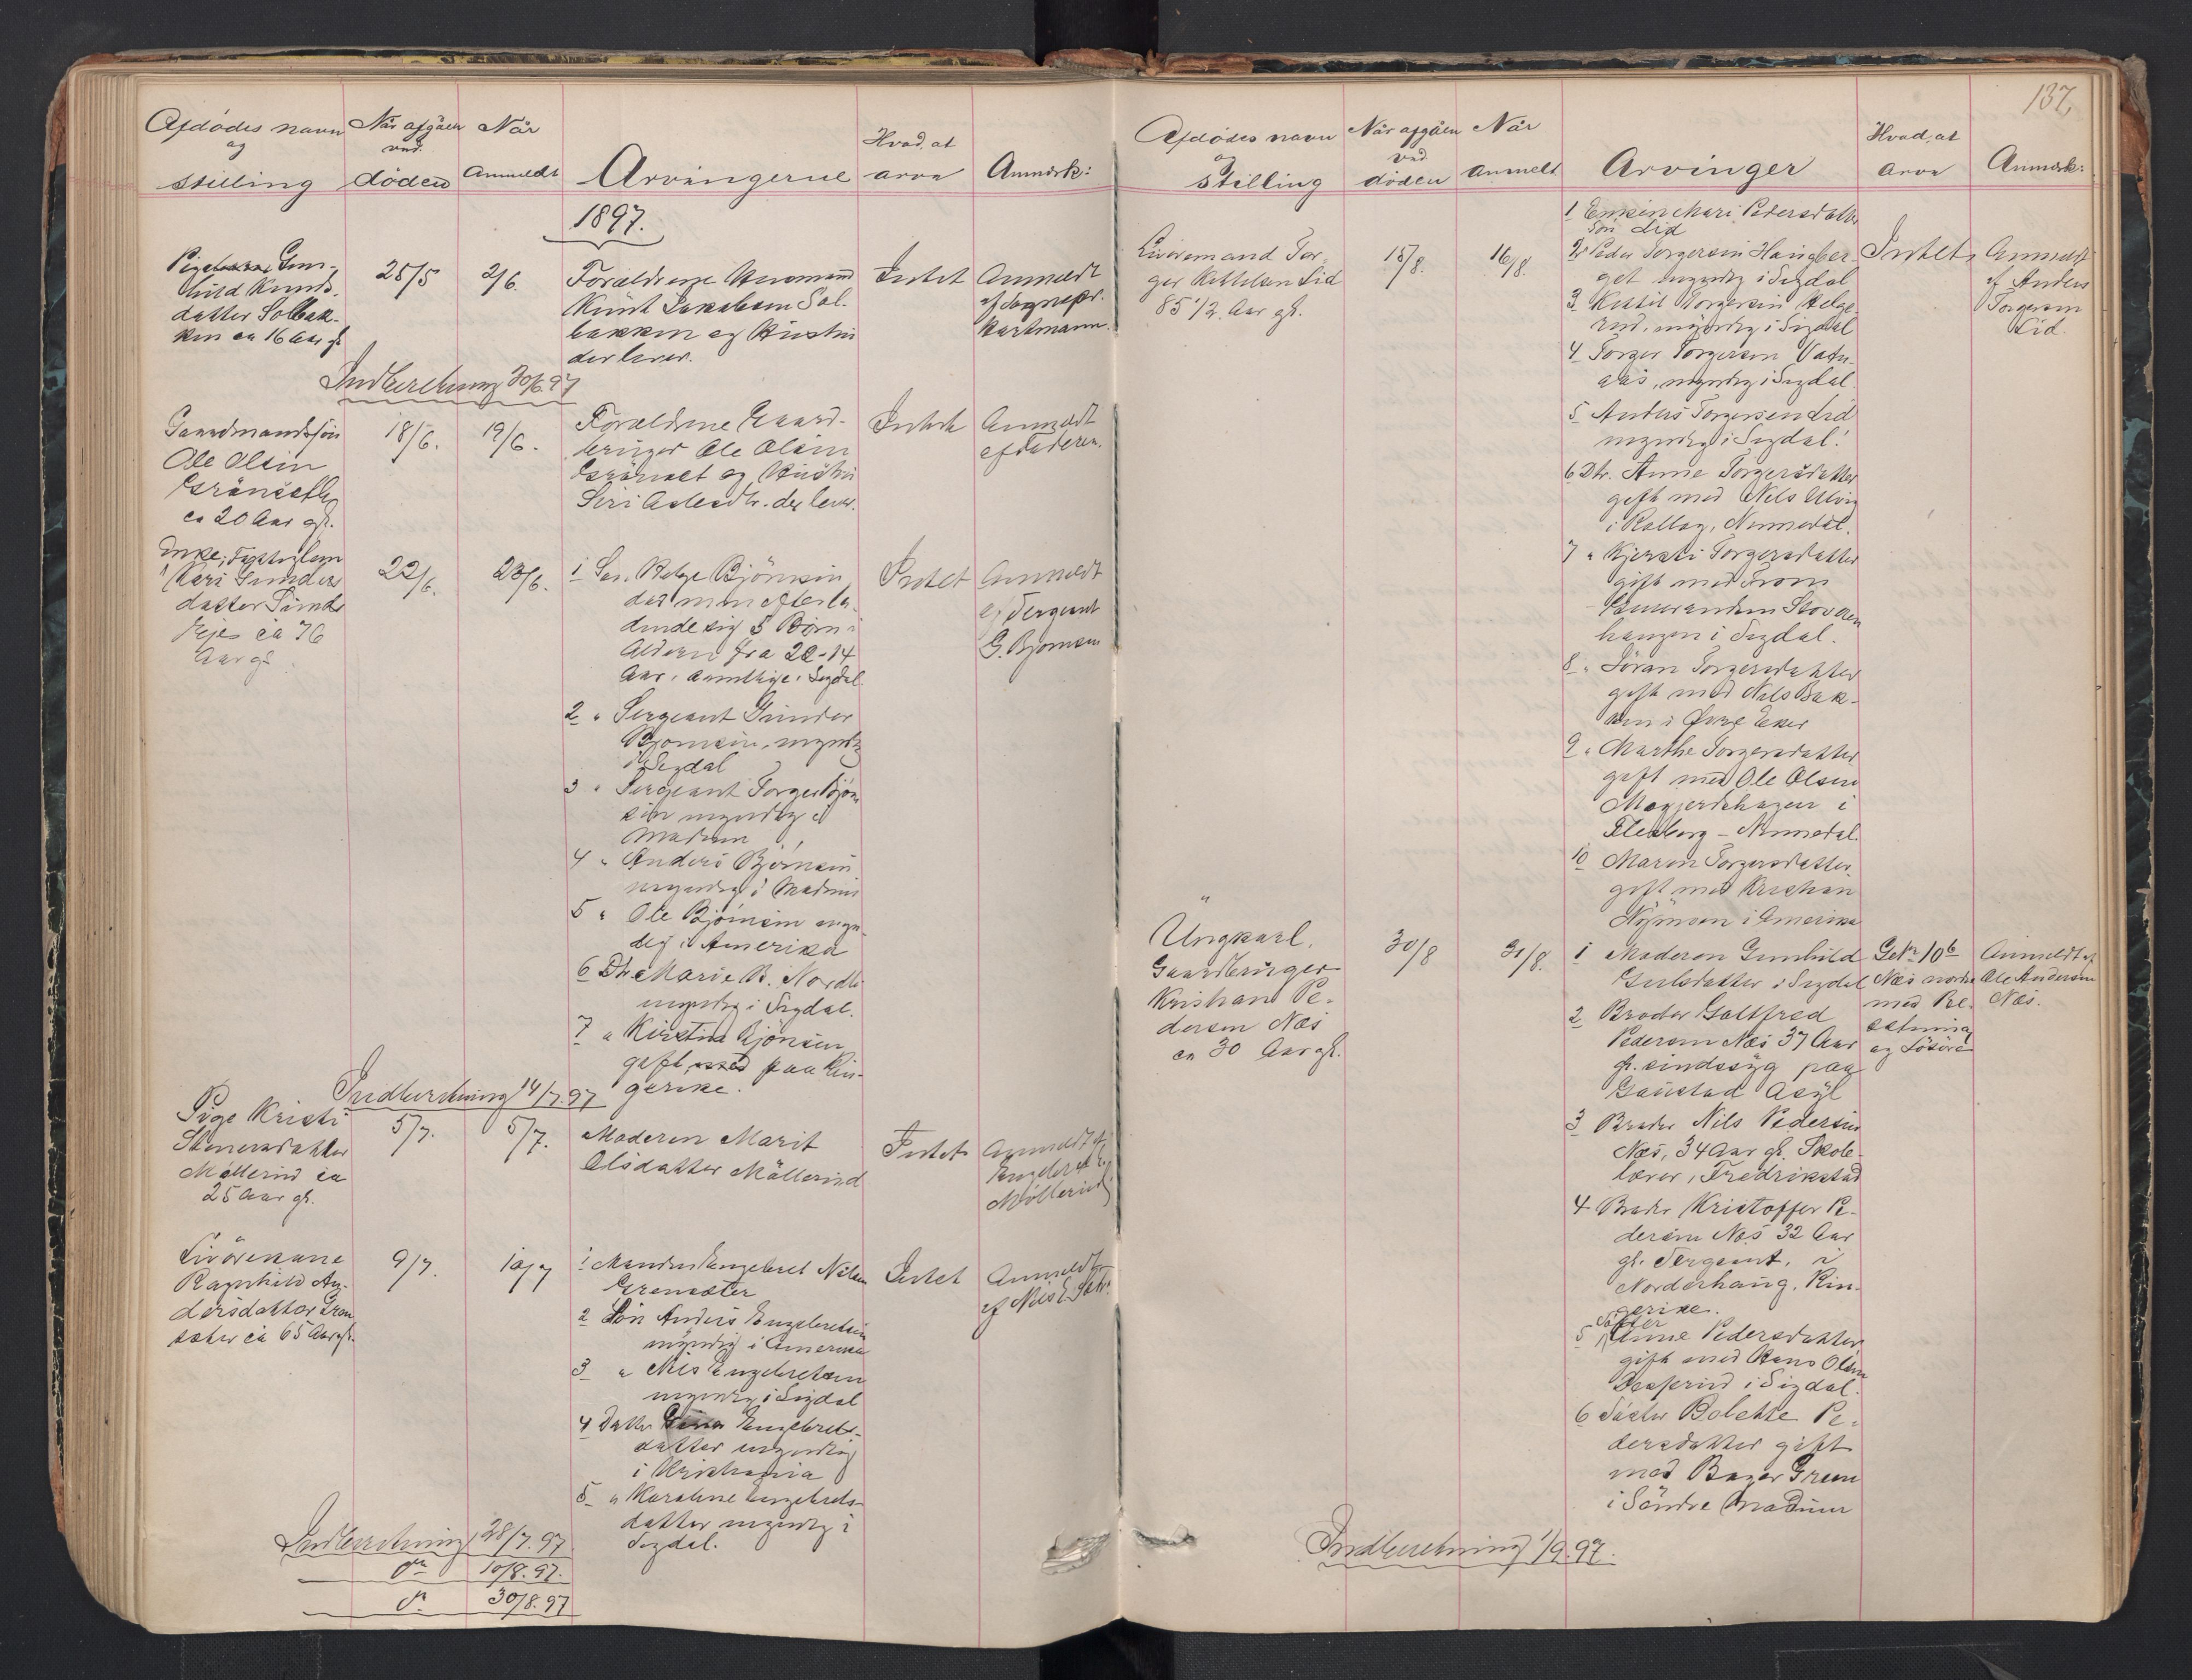 Afdödes navn
og
stilling
Når afgåen
ved
döden
Når
Anmeldt
Arvingerne
Hvad, at
arve
Anmærk:
1897.
Pigebarn Gun-
hild Knuds-
datter Solbak-
ken ca 16 Aar gl
25/5
2/6.
Forældrene Husmand
Knut Jakobsen Sol-
bakken og Hustru
der lever.
Intet
Anmeldt
af Sognepr.
Hartmann.
Indberetning 30/6 97
Gaardmandssön
Ole Olsen
Grönseth
ca 20 Aar gl.
18/6.
19/6.
Forældrene Gaard-
bruger Ole Olsen
og Hustru
Siri Aslesdtr. der lever.
Intet
Anmeldt
af Faderen.
Enke, Fattiglem
Kari Gunders
datter
Eje ca 76
Aar gl.
22/6.
23/6.
1 Sön Helge Björnsen
död men efterla-
dende sig 5 Börn i
Alderen fra 22-14
Aar, samtlige i Sigdal.
2 " Sergeant Gunder
Bjornsen, myndig
i Sigdal
3 " Sergeant Torger Björn
sen myndig i
Modum
4 " Anders Bjornsen
myndig i Modum
5 " Ole Björnsen myn-
dig i Amerika
6 Dtr Marie B. Nordli
myndig i Sigdal.
7 " Kirstine Björnsen
gift paa Rin-
gerike.
Intet
Anmeldt
af Sergeant
G. Bjornsen
Indberetning 14/7.97
Pige Kristi
Stenersdatter
Möllerud ca
25 Aar gl.
5/7.
5/7.
Moderen Marit
Olsdatter Möllerud
Intet
Anmeldt af
Engebret E.
Möllerud
Livörekone
Ragnhild An-
dersdatter Gren
sæter ca 65 Aar gl.
9/7.
10/7
1 Manden Engebret Nilsen
Grensæter
2 Sön Anders Engebretsen
myndig i Amerika
3 " Nils Engebretsen
myndig i Sigdal
4 Datter Engebrets-
datter myndig
i Kristiania
5 " Karoline Engebrets-
datter myndig i
Sigdal.
Intet
Anmeldt
af Nils E. Sæt.
Indberetning 28/7.97
do 10/8.97.
do 30/8.97
137.
Afdödes navn
og
Stilling
Når afgåen
ved
döden
Når
anmelt
Arvinger
Hvad, at
arve
Anmærk:
Livöremand Tor-
ger Kittelsen Lid
85 1/2 Aar gl.
15/8.
16/8.
1 Enken Mari Pedersdatter
Lid
Sön
2 Peder Torgersen Haugber-
get myndig i Sigdal
3 Kittil Torgersen Helge-
rud, myndig i Sigdal
4 Torger Torgersen Vatn-
aas, myndig i Sigdal.
5 Anders Torgersen Lid
myndig i Sigdal.
6 Dtr. Anne Torgersdatter
gift med Nils Ulvig
i Rollag, Nummedal.
7 " Kjersti Torgersdatter
gift med Trom
Gunerandsen Stovern
haugen i Sigdal.
8 " Jöran Torgersdatter
gift med Nils Bak-
ken i Övre Eker
9 " Marthe Torgersdatter
gift med Ole Olsen
Mogjerdehagen i
Flesberg - Nummedal.
10 " Maren Torgersdatter
gift med Kristian
i Amerika
Intet
Anmeldt
af Anders
Torgersen
Lid.
Ungkarl,
Gaardbruger
Kristian Pe-
dersen Næs
ca 30 Aar gl.
30/8
31/8.
1 Moderen Gunhild
Gulsdatter i Sigdal
2 Broder Gottfred
Pedersen Næs 37 Aar
gl. sindssyg paa
Gaustad Asyl
3 Broder Nils Pedersen
Næs, 34 Aar gl. Skole-
lærer, Fredrikstad
4 Broder Kristoffer Pe-
dersen Næs 32 Aar
gl. Sergeant, i
Norderhaug, Rin-
gerike.
5 Söster Anne Pedersdatter
gift med Hans Olsen
i Sigdal.
6 Söster Bolette Pe-
dersdatter gift
med Bager Green
i Söndre Modum
G. No 106
Næs nordre
med Be-
sætning
og Lösöre
Anmeldt af
Ole Andersen
Næs.
Indberetning 1/9.97.